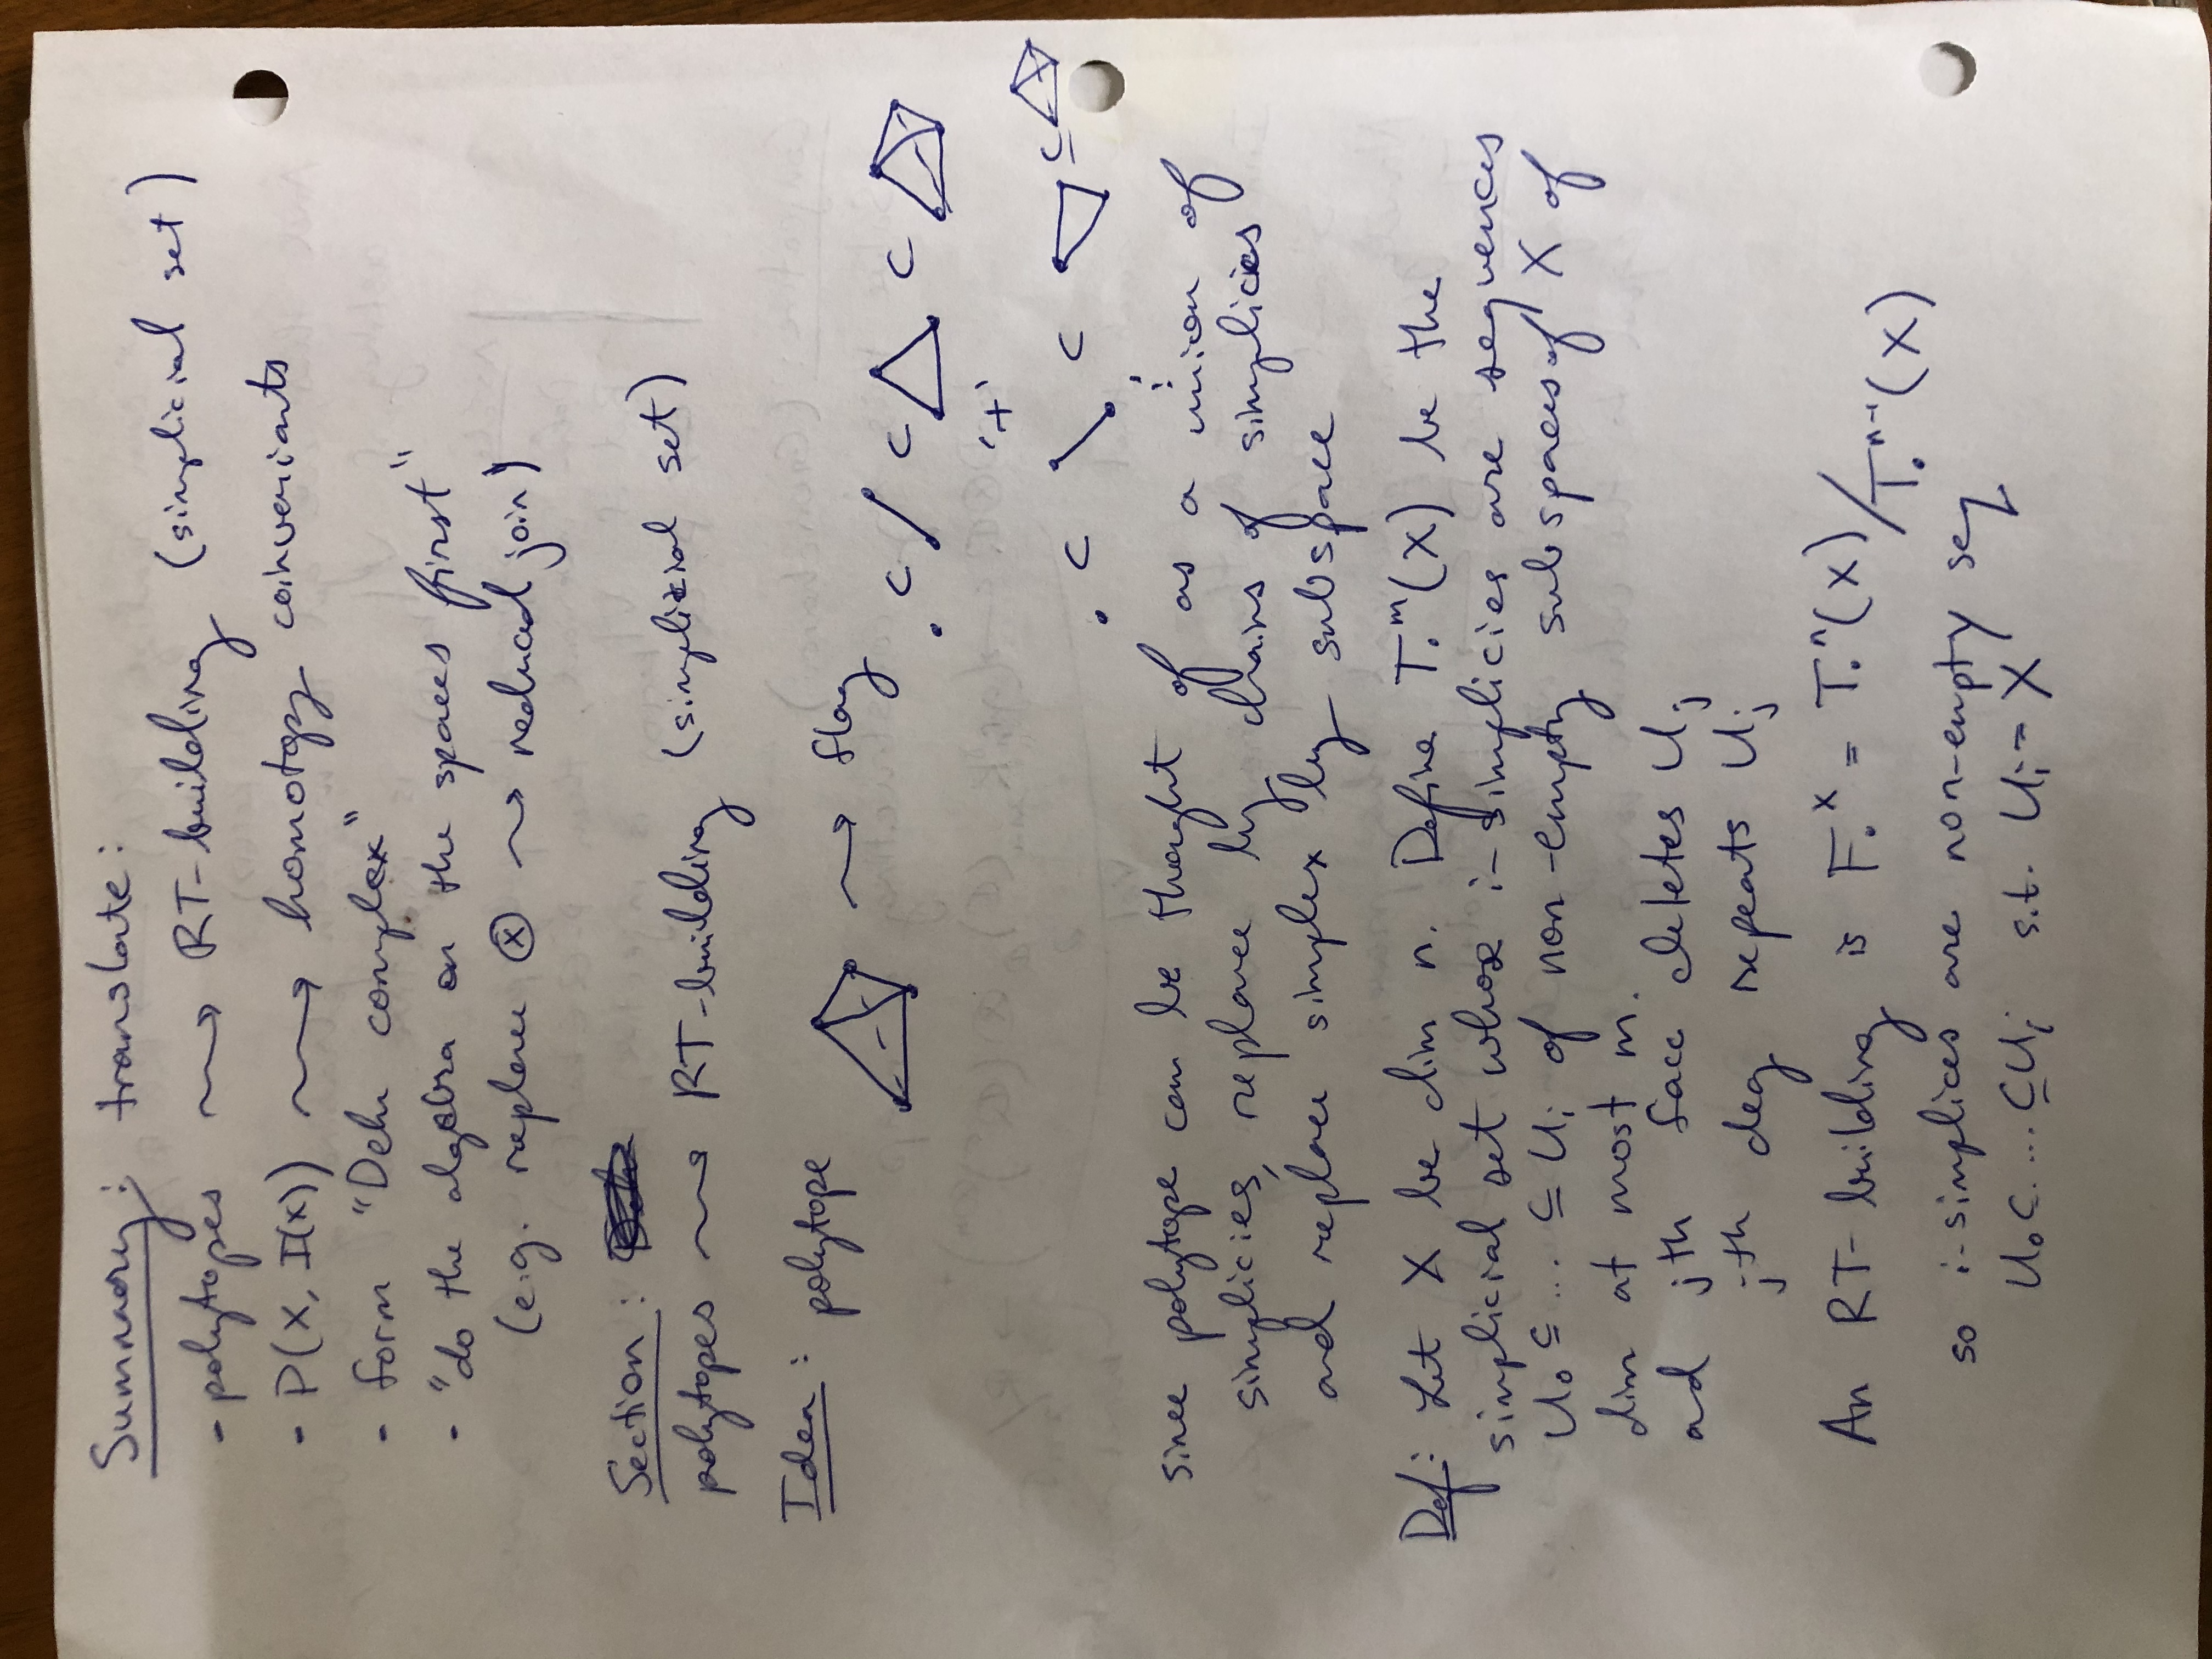 Summary: translate:
- polytopes ⇝ RT-building (simplicial set)
- P(X, I(X)) ⇝ homotopy coinvariants
- form "Dehn complex"
- "do the algebra on the spaces first"
(e.g. replace ⊗ ⇝ reduced join)
Section:
polytopes ⇝ RT-building (simplicial set)
Idea: polytope ⇝ flag
⊂ ⊂ ⊂
'+'
⊂ ⊂ ⊆
⋮
since polytope can be thought of as a union of
simplicies, replace by chains of simplicies
and replace simplex by subspace
Def: Let X be dim n. Define T.ᵐ(X) be the
simplicial set whose i-simplicies are sequences
U₀ ⊆ ... ⊆ Uᵢ of non-empty subspaces of X of
dim at most m.
and jth face deletes Uⱼ
jth deg repeats Uⱼ
An RT-building is F.ˣ = T.ⁿ(X)/T.ⁿ⁻¹(X)
so i-simplices are non-empty seq
U₀ ⊂. ... ⊆ Uᵢ s.t. Uᵢ = X